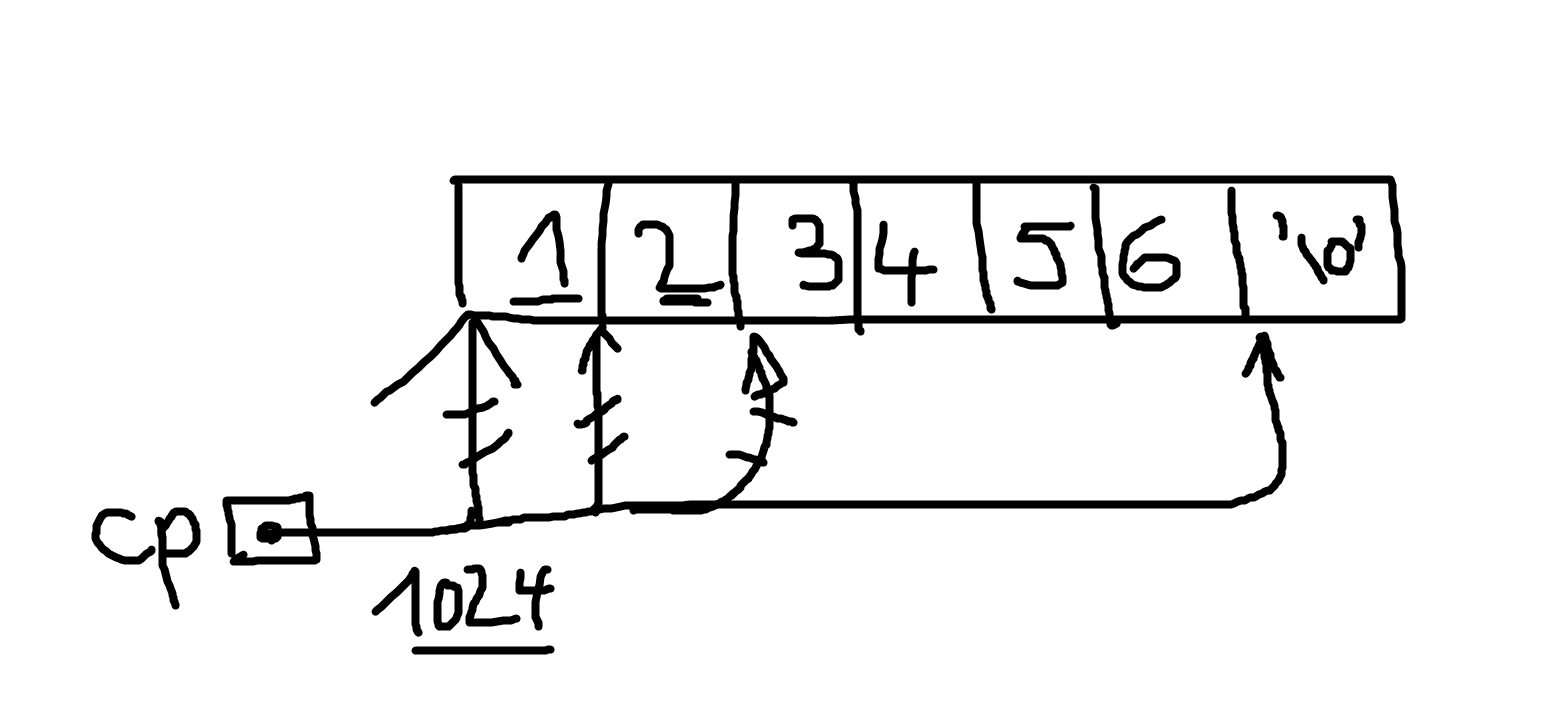 1 2 3 4 5 6 '\0'
cp
1024